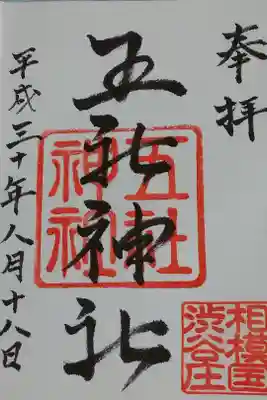 奉拝
五社神社
平成三十年八月十八日
五社神社
相模国渋谷庄